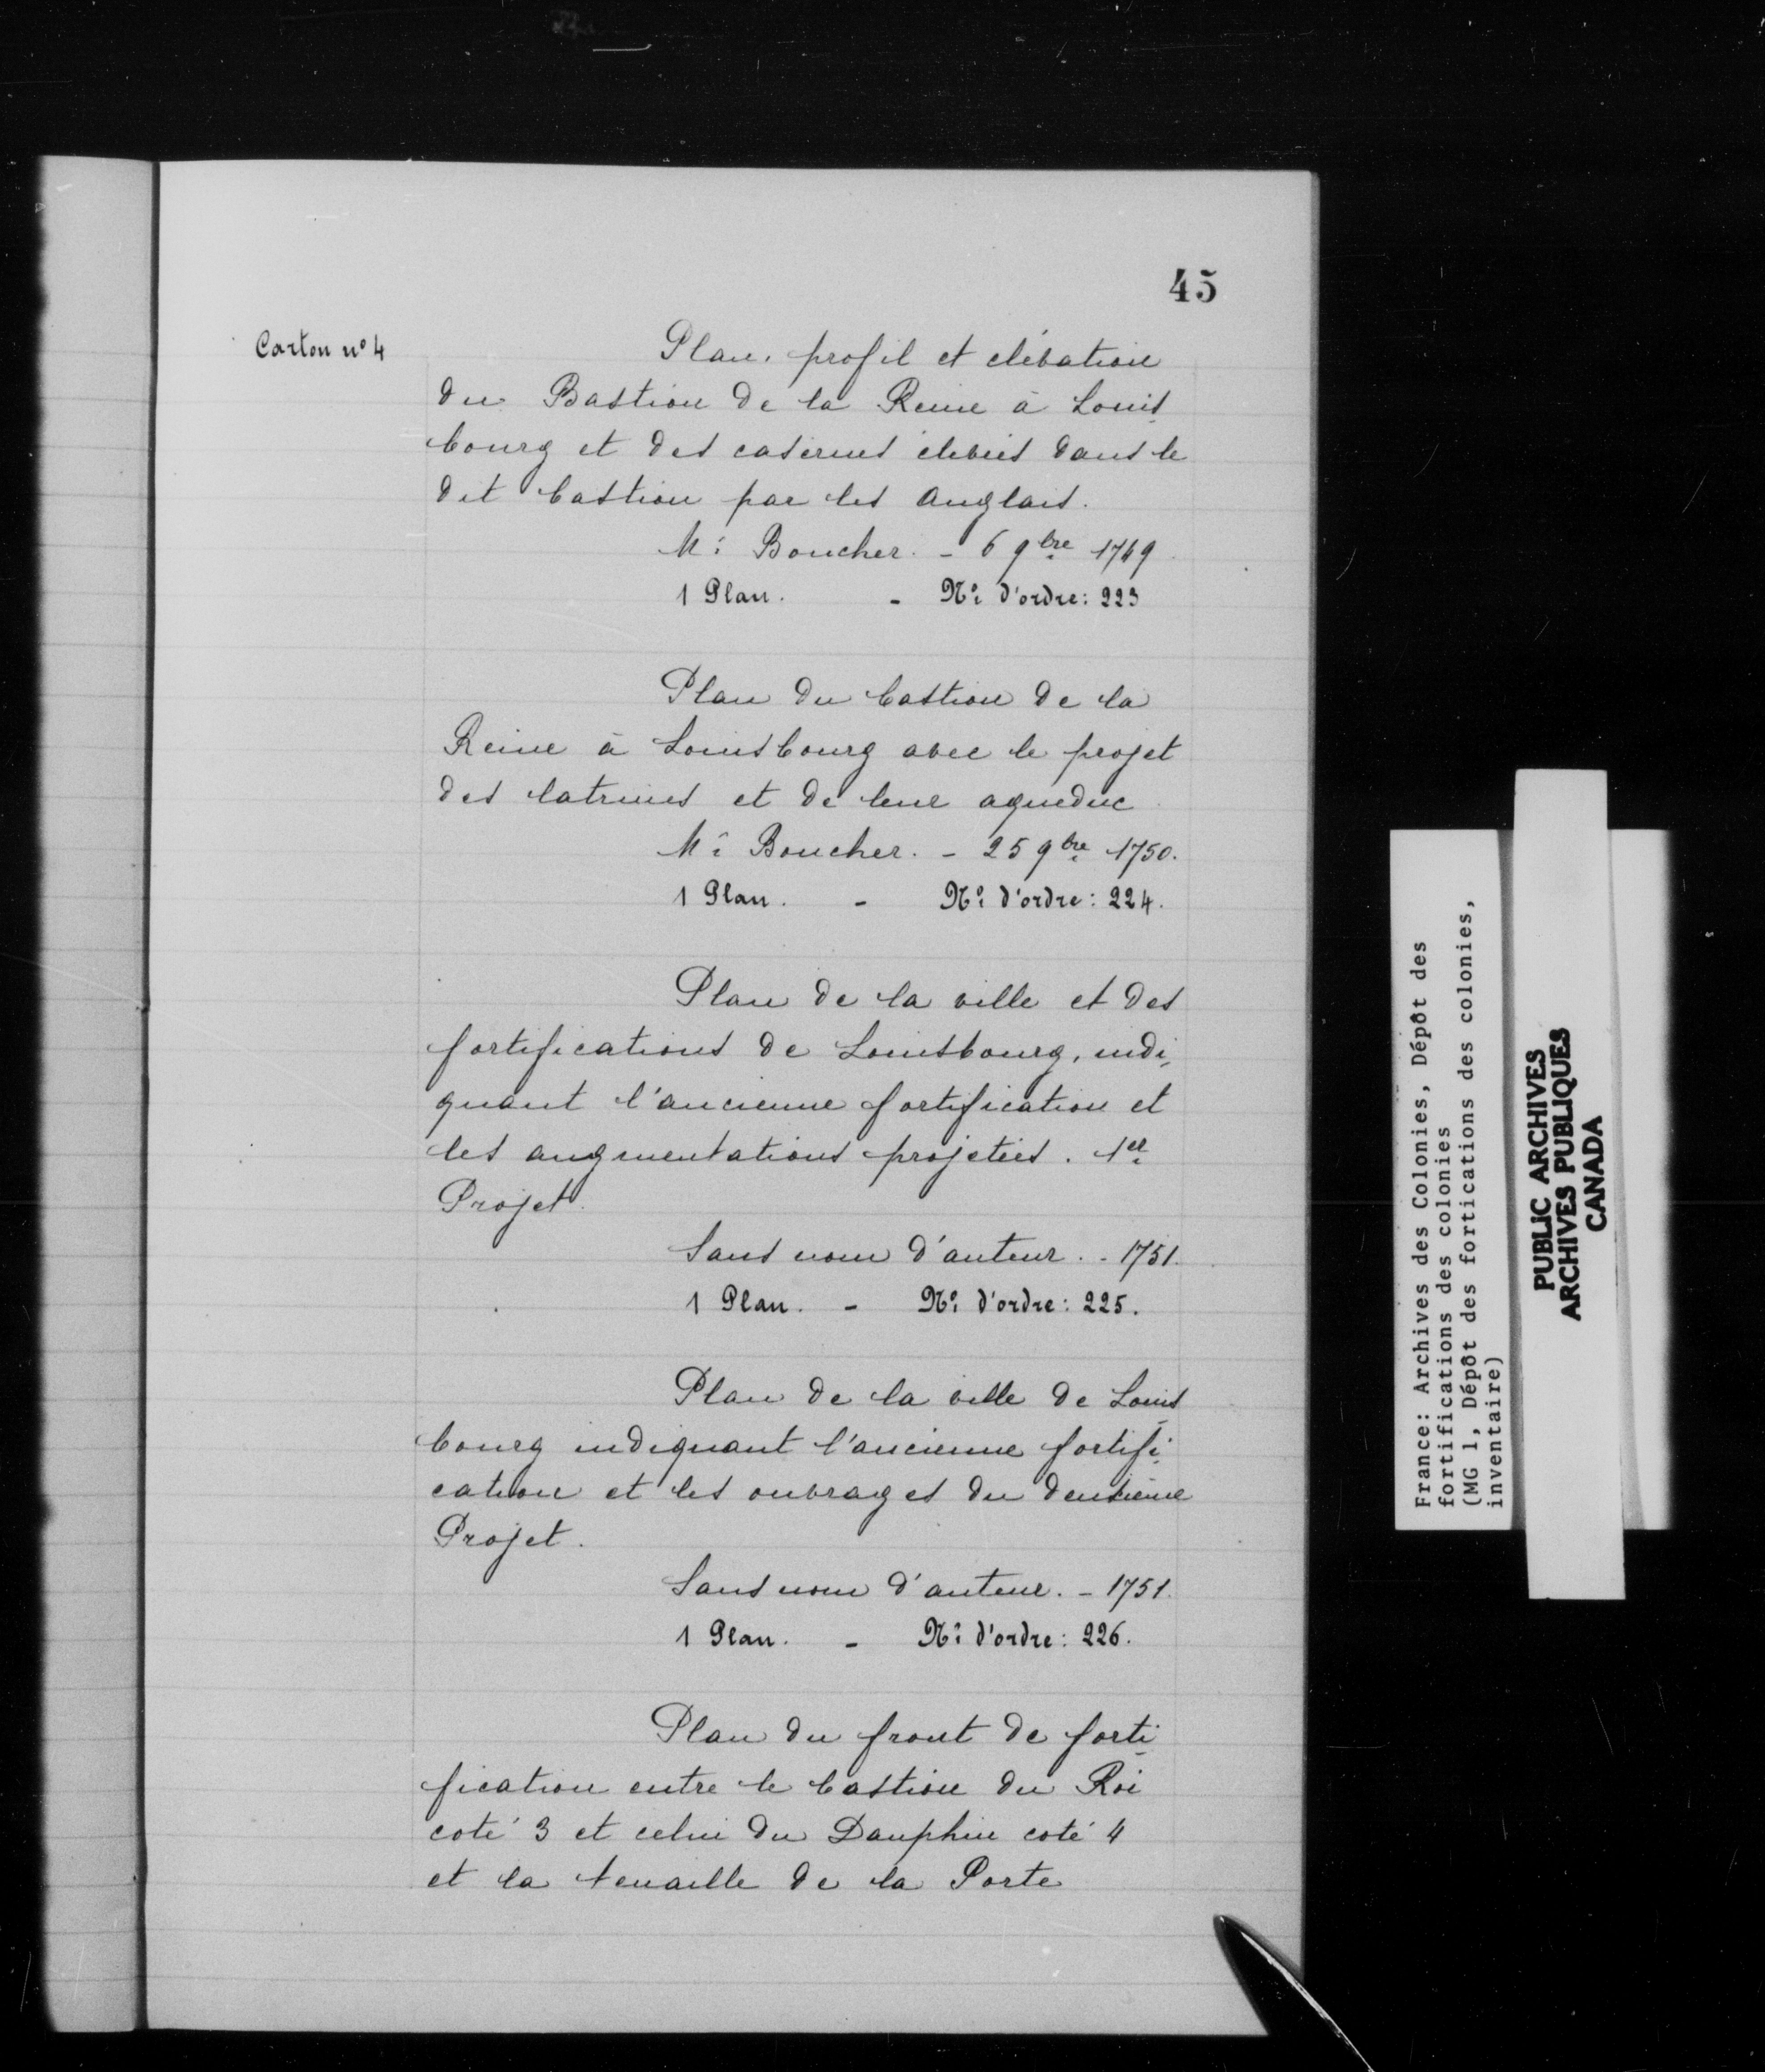 45
Carton nº 4
Plan, profil et élévation
du Bastion de la Reine à Louis
bourg et des casernes élevées dans le
dit bastion par les anglais.
Mr Boucher. - 6 9bre 1749
1 Plan. - Nº d'ordre: 223
Plan du bastion de la
Reine à Louisbourg avec le projet
des latrines et de leur aqueduc
Mr Boucher. - 25 9bre 1750.
1 Plan. - Nº d'ordre: 224.
Plan de la ville et des
fortifications de Louisbourg, indi
quant l'ancienne fortification et
les augmentations projetées. 1er
Projet.
Sans nom d'auteur. - 1751.
1 Plan. - Nº d'ordre: 225.
Plan de la ville de Louis
bourg indiquant l'ancienne fortifi
cation et les ouvrages du deuxième
Projet.
Sans nom d'auteur. - 1751.
1 Plan. - Nº d'ordre: 226.
Plan du front de forti
fication entre le bastion du Roi
coté 3 et celui du Dauphin coté 4
et la tenaille de la Porte
France: Archives des Colonies, Dépôt des
fortifications des colonies
(MG 1, Dépôt des fortications des colonies,
inventaire)
PUBLIC ARCHIVES
ARCHIVES PUBLIQUES
CANADA